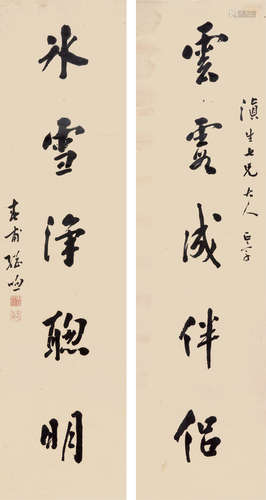 滇生七兄大人正字
雲霞成伴侶
冰雪淨聰明
甫